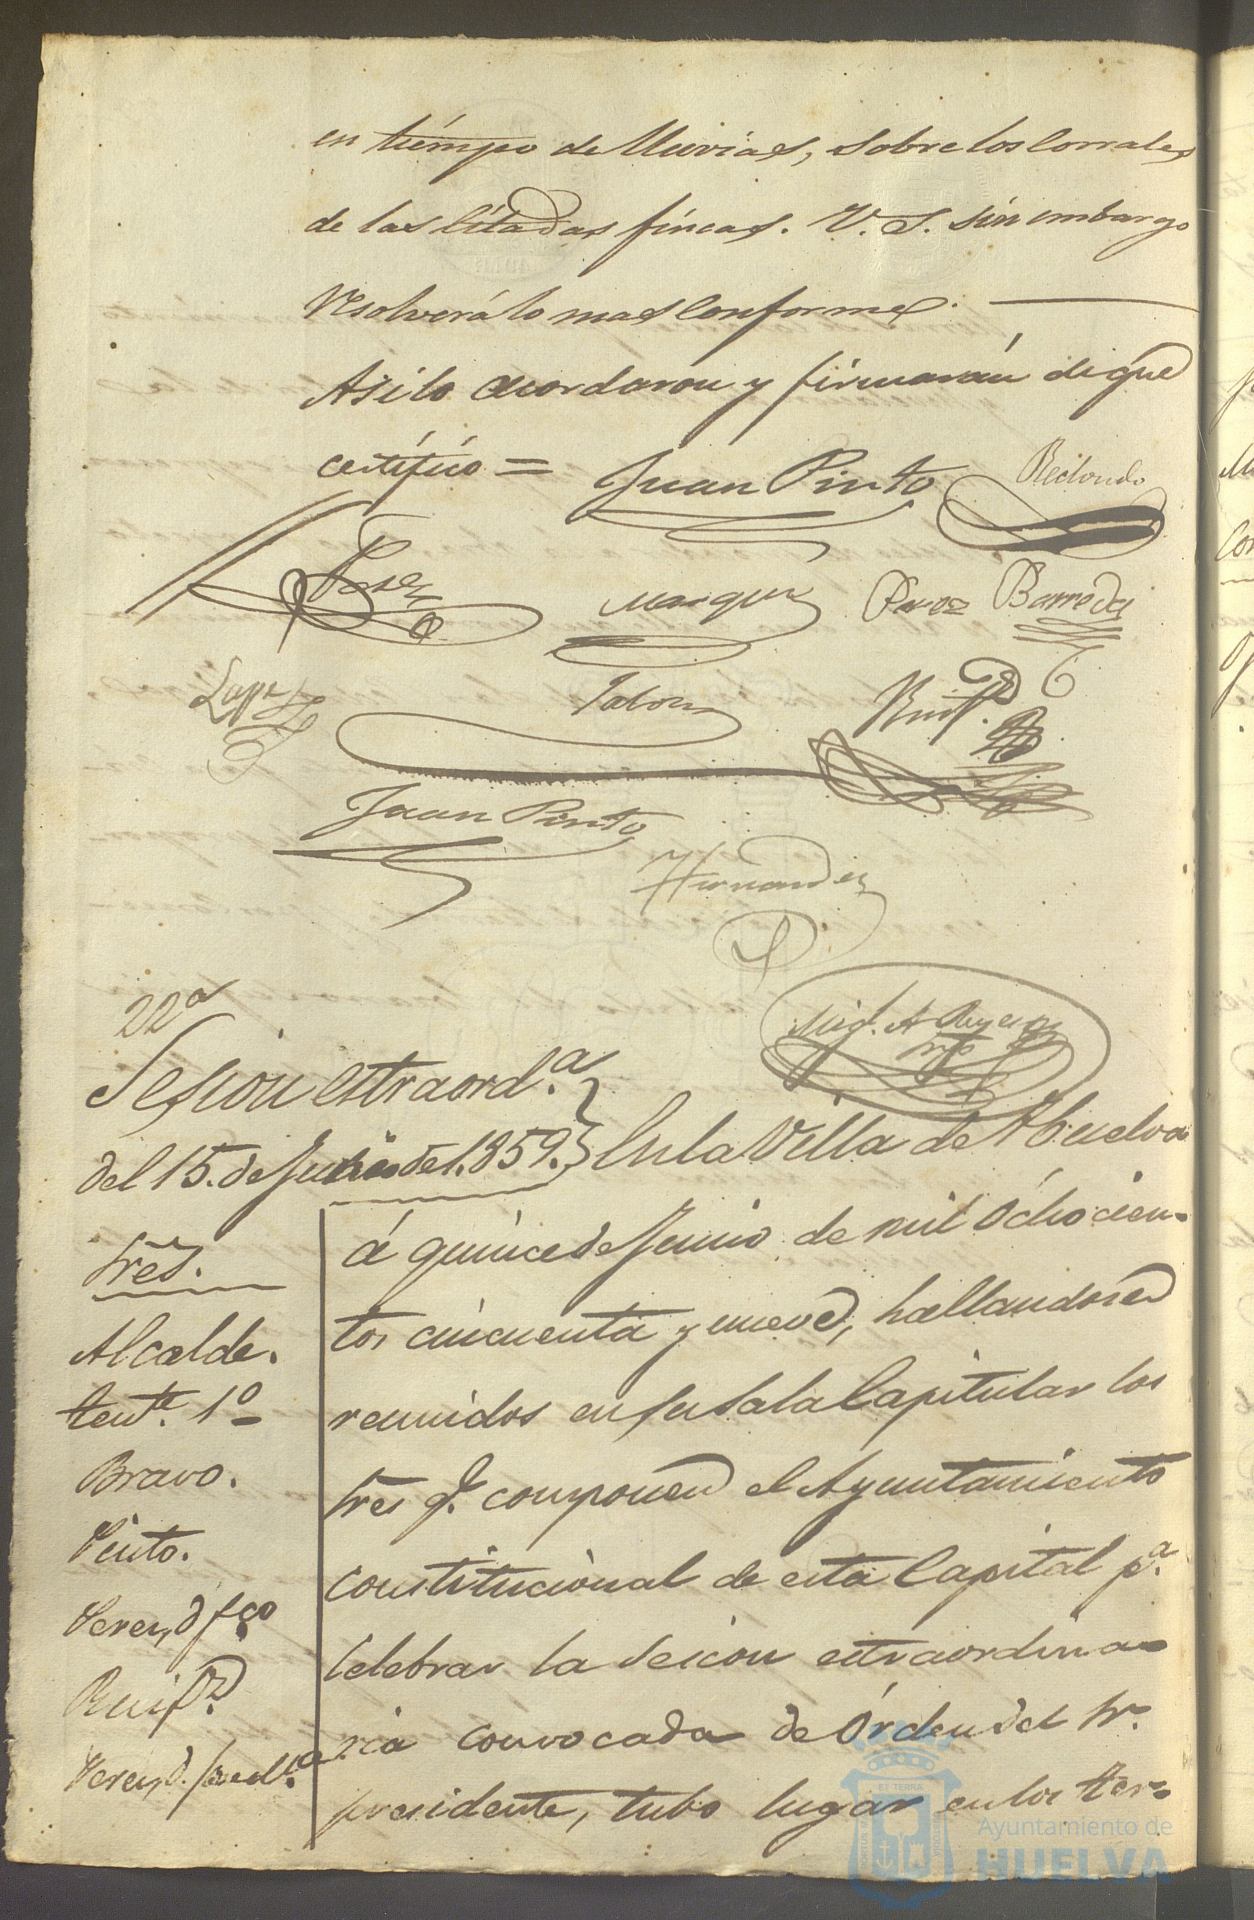 en tiempo de lluvias, sobre los Corrales
de las Citadas fincas. V. S. sin embargo
resolverá lo mas Conforme.
Asi lo acordaron y firmarán de que
certifico = Juan Pinto Redondo
Perez Marquez Perez Barreda
Lopez Ruiz
Juan Pinto
Hernandez
22ª
Sesion estraord.ª
del 15. de Junio del 1859.
Sres.
Alcalde.
tente. 1º
Bravo.
Pinto.
Perez, d fco
Perez, d.
En la Villa de Huelva
á quince de Junio de mil óchocien-
tos cincuenta y nueve, hallandose
reunidos en su Sala Capitular los
Sres q. componen el Ayuntamiento
Constitucional de esta Capital p.ª
Celebrar la Sesion estraordina-
ria convocada de órden del Sr.
presidente, tubo lugar en los ter-
ET TERRA
Ayuntamiento de
HUELVA